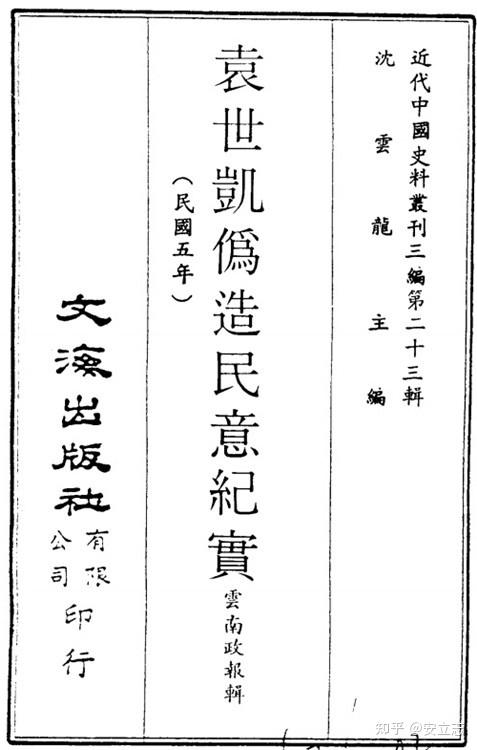 近代中國史料叢刊三編第二十三輯
沈雲龍主編
袁世凱偽造民意紀實
雲南政報輯
(民國五年)
文海出版社
有限公司
印行
知乎 @安立志